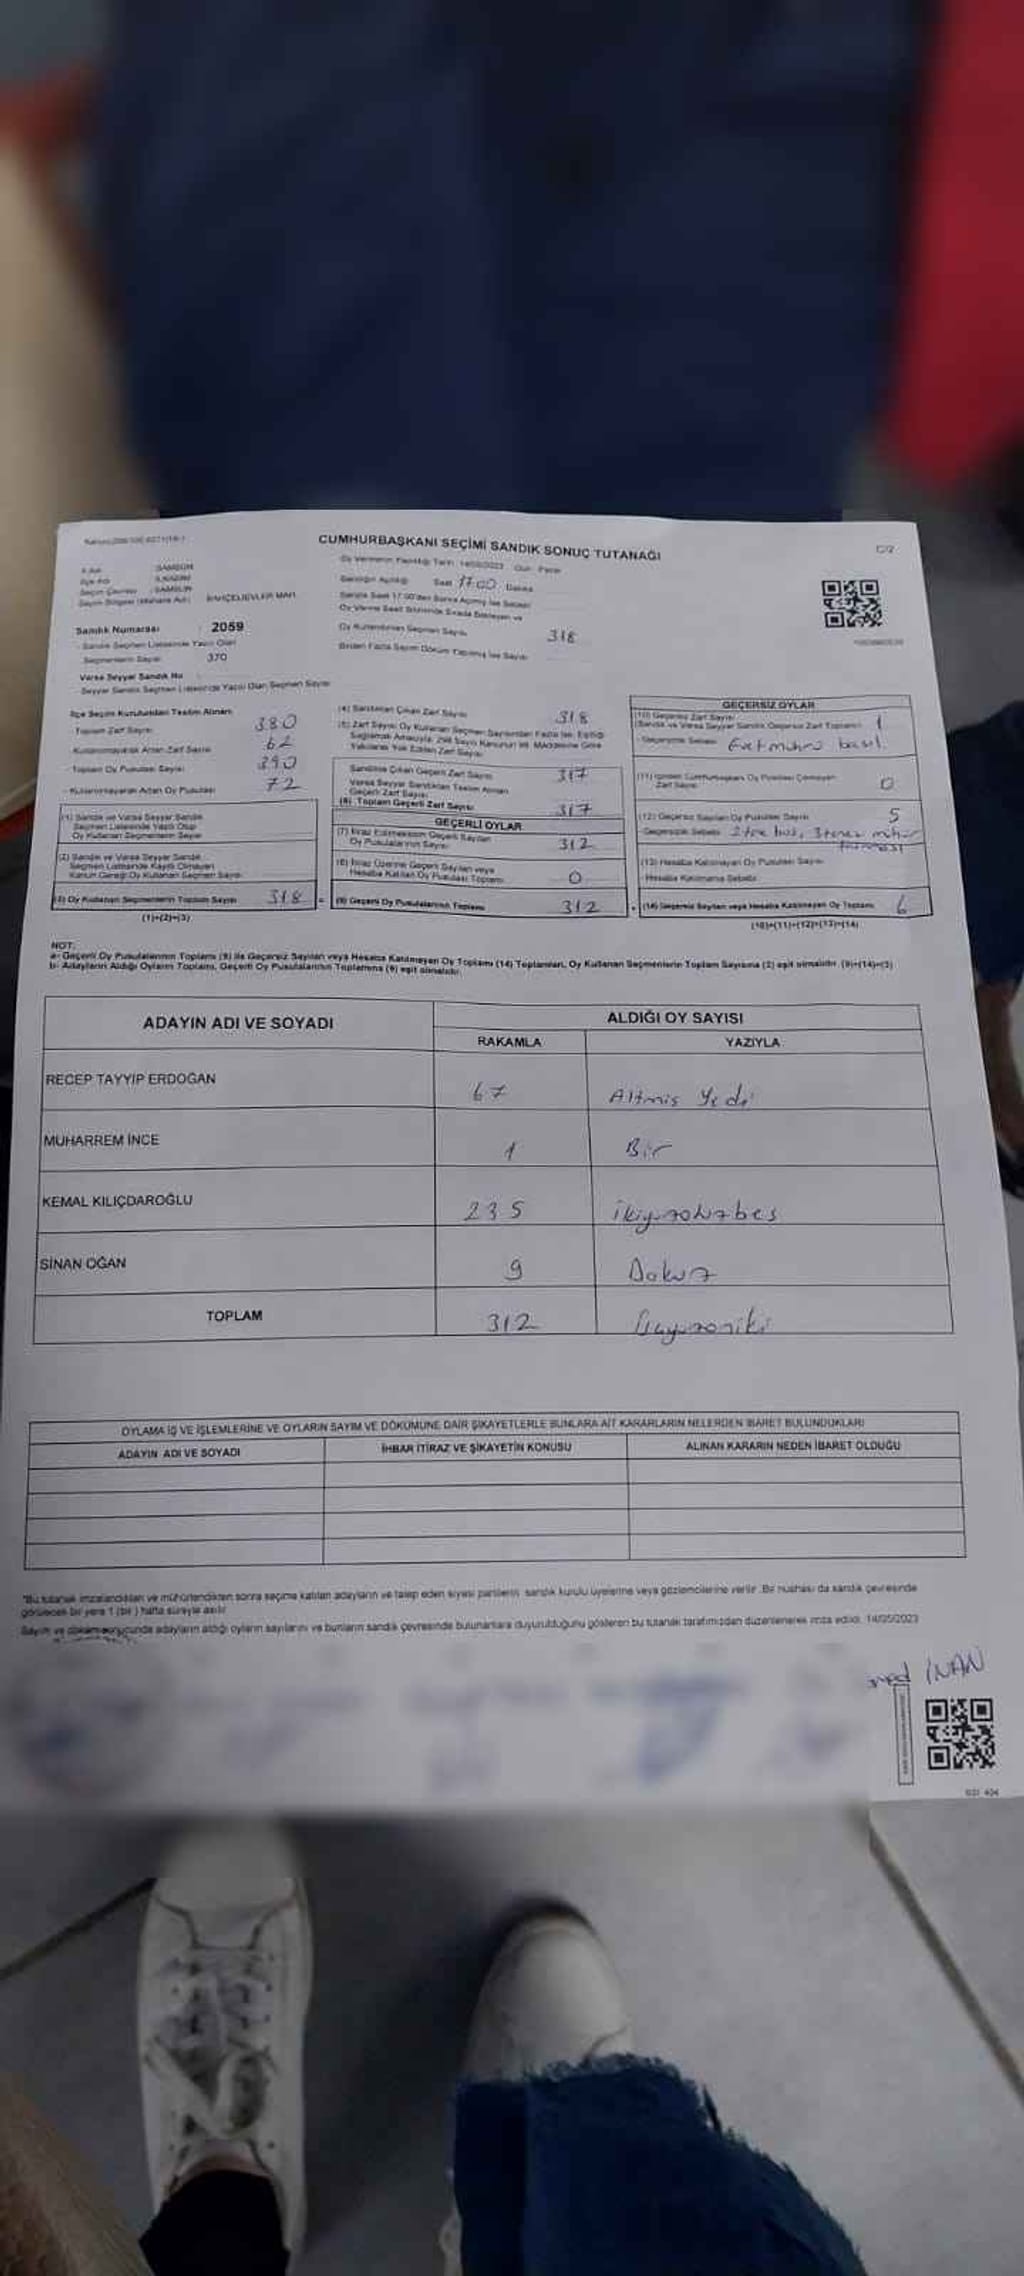 CUMHURBAŞKANI SEÇİMİ SANDIK SONUÇ TUTANAĞI
C/2
Oy Vermenin Yapıldığı Tarih: 14/05/2023 Gün: Pazar
İl Adı : SAMSUN
İlçe Adı : İLKADIM
Seçim Çevresi : SAMSUN
Seçim Bölgesi (Mahalle Adı) : BAHÇELİEVLER MAH.
Sandığın Açıldığı Saat 17:00 Dakika
Sandık Numarası : 2059
Sandık Seçmen Listesinde Yazılı Olan
Seçmenlerin Sayısı : 370
Oy Kullandırılan Seçmen Sayısı 318
Birden Fazla Sayım Döküm Yapılmış İse Sayısı
Varsa Seyyar Sandık No :
Seyyar Sandık Seçmen Listesinde Yazılı Olan Seçmen Sayısı
İlçe Seçim Kurulundan Teslim Alınan:
Toplam Zarf Sayısı 380
Kullanılmayarak Artan Zarf Sayısı 62
Toplam Oy Pusulası Sayısı 390
Kullanılmayarak Artan Oy Pusulası 72
(1) Sandık ve Varsa Seyyar Sandık
Seçmen Listesinde Yazılı Olup
Oy Kullanan Seçmenlerin Sayısı
(2) Sandık ve Varsa Seyyar Sandık
Seçmen Listesinde Kayıtlı Olmayan
Kanun Gereği Oy Kullanan Seçmen Sayısı
(3) Oy Kullanan Seçmenlerin Toplam Sayısı 318
(1)+(2)=(3)
(4) Sandıktan Çıkan Zarf Sayısı 318
Sandıkta Çıkan Geçerli Zarf Sayısı 317
Varsa Seyyar Sandıktan Teslim Alınan
Geçerli Zarf Sayısı
(6) Toplam Geçerli Zarf Sayısı 317
GEÇERLİ OYLAR
(7) İtiraz Edilmeksizin Geçerli Sayılan
Oy Pusulalarının Sayısı 312
(8) İtiraz Üzerine Geçerli Sayılan veya
Hesaba Katılan Oy Pusulası Toplamı 0
(9) Geçerli Oy Pusulalarının Toplamı 312
GEÇERSİZ OYLAR
(10) Geçersiz Zarf Sayısı
(Sandık ve Varsa Seyyar Sandık Geçersiz Zarf Toplamı) 1
Geçersizlik Sebebi
(11) İçinden Cumhurbaşkanı Oy Pusulası Çıkmayan
Zarf Sayısı 0
(12) Geçersiz Sayılan Oy Pusulası Sayısı 5
Geçersizlik Sebebi
(13) Hesaba Katılmayan Oy Pusulası Sayısı
Hesaba Katılmama Sebebi
(14) Geçersiz Sayılan veya Hesaba Katılmayan Oy Toplamı 6
(10)+(11)+(12)+(13)=(14)
NOT:
a- Geçerli Oy Pusulalarının Toplamı (9) ile Geçersiz Sayılan veya Hesaba Katılmayan Oy Toplamı (14) Toplamları, Oy Kullanan Seçmenlerin Toplam Sayısına (3) eşit olmalıdır. (9)+(14)=(3)
b- Adayların Aldığı Oyların Toplamı, Geçerli Oy Pusulalarının Toplamına (9) eşit olmalıdır.
ADAYIN ADI VE SOYADI
ALDIĞI OY SAYISI
RAKAMLA YAZIYLA
RECEP TAYYIP ERDOĞAN 67 Altmis Yedi
MUHARREM İNCE 1 Bir
KEMAL KILIÇDAROĞLU 235 ikiyüzotuzbes
SİNAN OĞAN 9 Dokuz
TOPLAM 312 Üçyüzoniki
OYLAMA İŞ VE İŞLEMLERİNE VE OYLARIN SAYIM VE DÖKÜMÜNE DAİR ŞİKAYETLERLE BUNLARA AİT KARARLARIN NELERDEN İBARET BULUNDUKLARI
ADAYIN ADI VE SOYADI İHBAR İTİRAZ VE ŞİKAYETİN KONUSU ALINAN KARARIN NEDEN İBARET OLDUĞU
*Bu tutanak imzalandıktan ve mühürlendikten sonra seçime katılan adayların ve talep eden siyasi partilerin sandık kurulu üyelerine veya gözlemcilerine verilir. Bir nüshası da sandık çevresinde
görülecek bir yere 1 (bir) hafta süreyle asılır.
Sayım ve döküm sonucunda adayların aldığı oyların sayılarını ve bunların sandık çevresinde bulunanlara duyurulduğunu gösteren bu tutanak tarafımızdan düzenlenerek imza edildi. 14/05/2023
İNAN